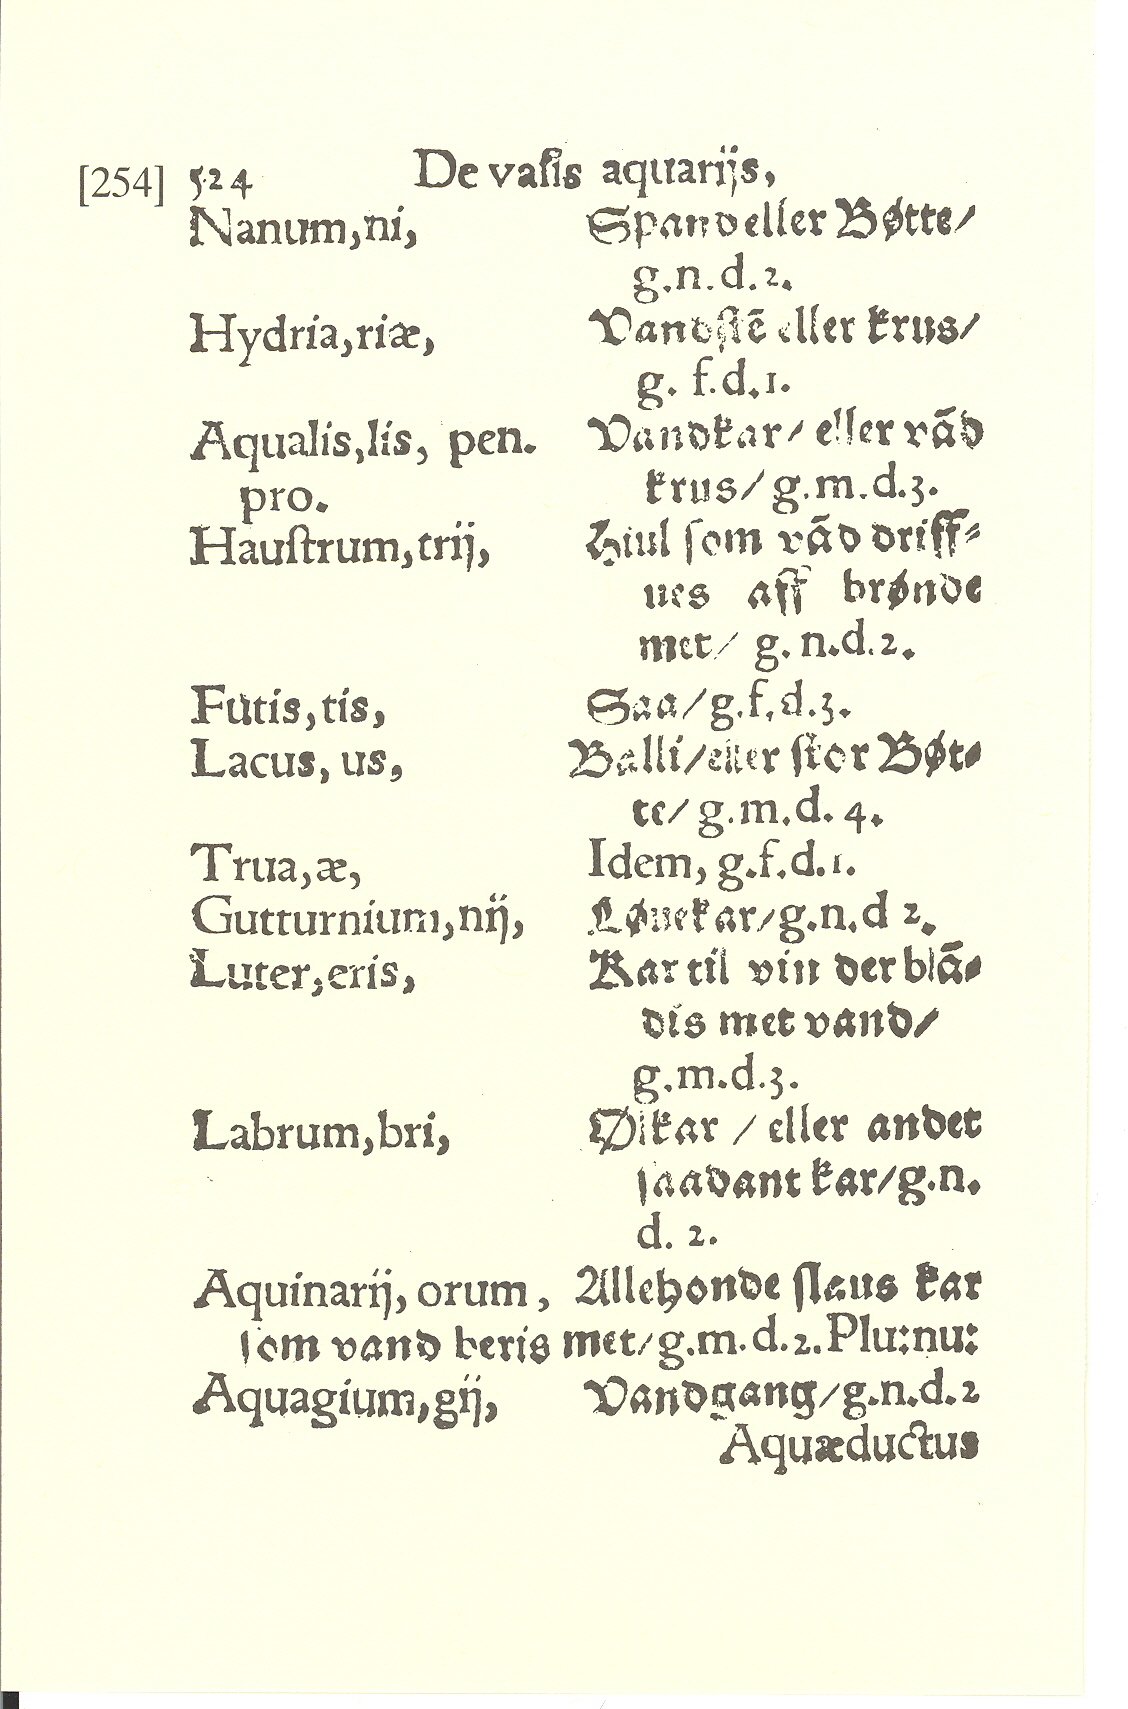 [254] 524 De vasis aquarijs,
Nanum,ni, Spand eller Bøtte/
g.n.d.2.
Hydria,riæ, Vandstẽ eller krus/
g. f.d.1.
Aqualis,lis, pen. Vandkar/ eller vãd
pro. krus/ g.m.d.3.
Haustrum,trij, Hiul som vãd driff-
ues aff brønde
met/ g.n.d.2.
Futis,tis, Saa/g.f.d.3.
Lacus, us, Balli/eller stor Bøt-
te/ g.m.d. 4.
Trua,æ, Idem, g.f.d.1.
Gutturnium,nij, Løuekar/g.n.d 2.
Luter,eris, Kar til vin der blã-
dis met vand/
g.m.d.3.
Labrum,bri, Ølkar / eller andet
saadant kar/g.n.
d. 2.
Aquinarij, orum, Allehonde slaus kar
som vand beris met/g.m.d.2.Plu:nu:
Aquagium,gij, Vandgang/g.n.d.2
Aquæductus